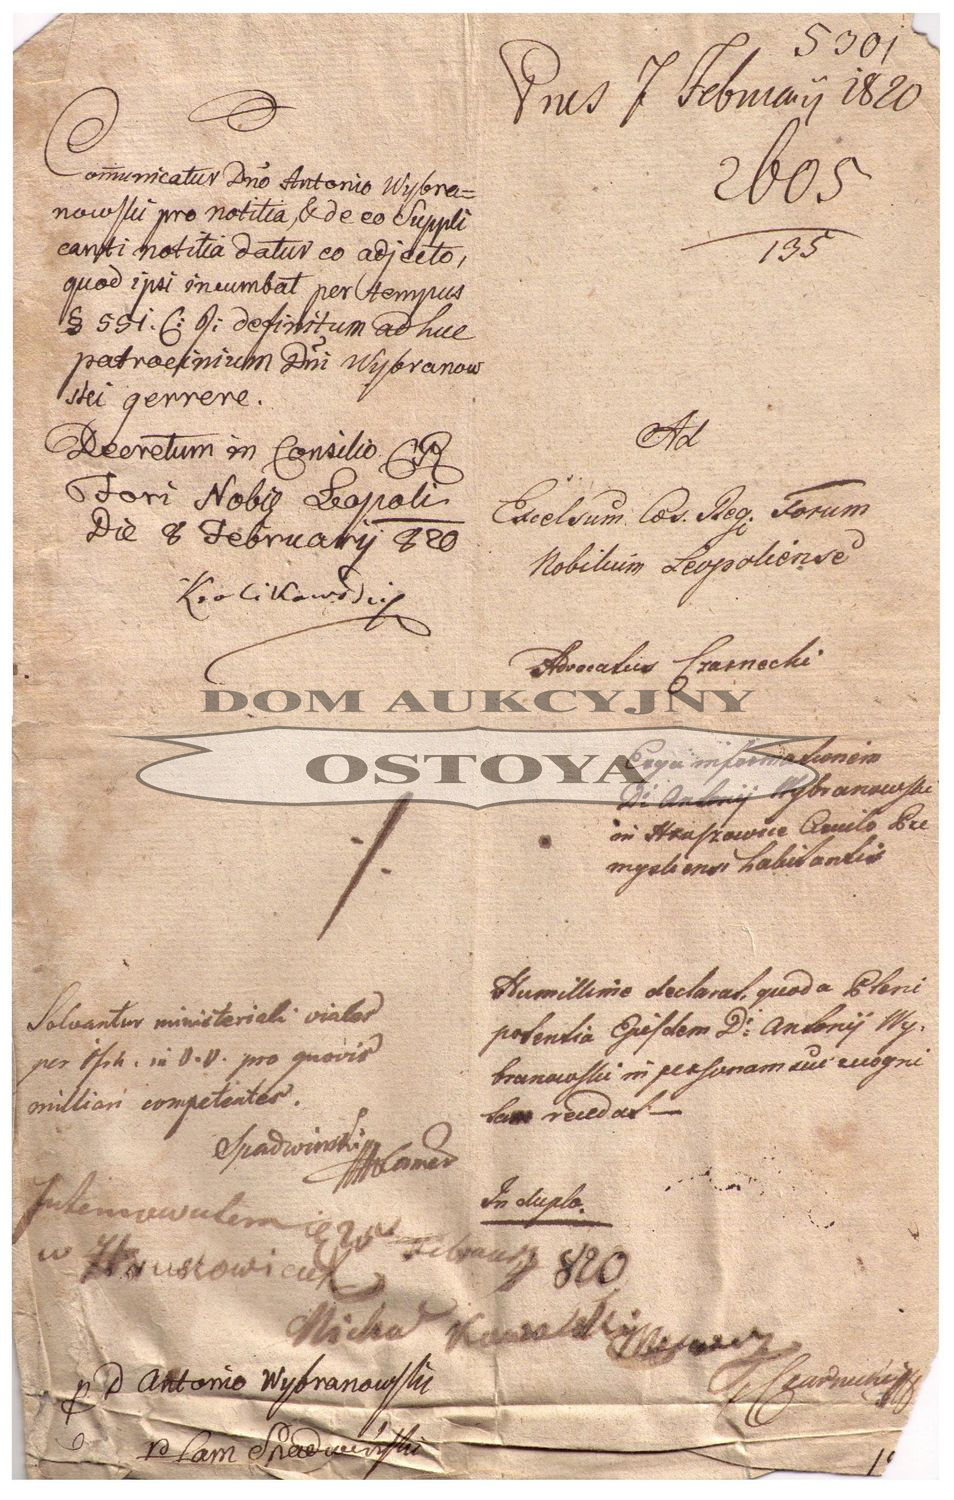 5301
Pnes 7 February 1820
2605
135
Communicatur Dno Antonio Wybra=
nowski pro notitia, & de eo Suppli
canti notitia datur eo adjecto,
quod ipsi incumbat per tempus
§ 551. C: J: definitum adhuc
patrocinium Dni Wybranow
skei gerrere.
Decretum in Consilio CR
Fori Nobil Leopoli
Die 8 February 820
Krolikowski
Ad
Excelsum Caes. Reg. Forum
Nobilium Leopoliense
Advocatus Czarnecki
DOM AUKCYJNY
OSTOYA
Erga informationem
Di Antonij Wybranowski
in Hruszowice Circulo Pre
mysliensi habitantis
Humillime declarat, quod a Pleni
potentia Ejusdem Di Antonij Wy-
branowski in personam sui recogni
tam recedat
In duplo.
Solvantur ministeriali viales
per in pro quovis
milliari competentes.
Spadwinski
Intimowalem 12
w Hruszowicach February 820
Michal Kowalski
Czarnecki
p D Antonio Wybranowski
Cam Spadwinski